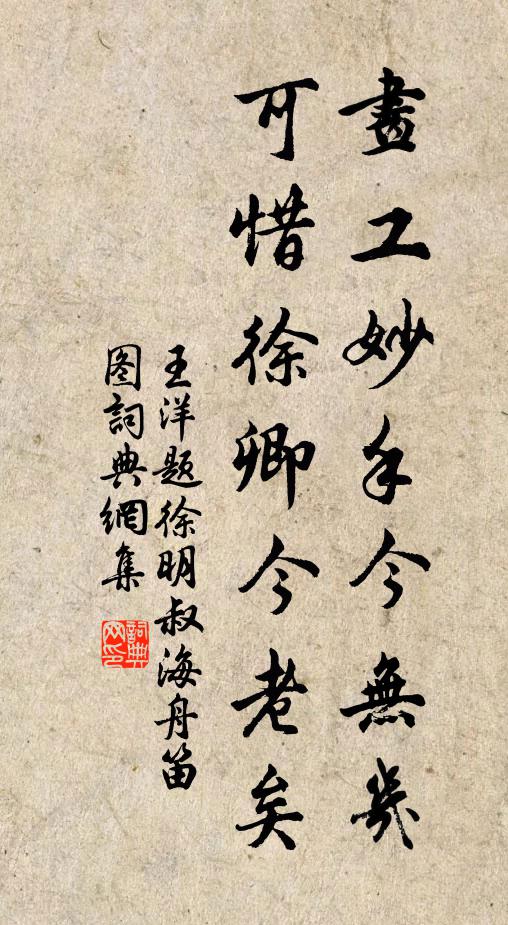 畫工妙手今無幾
可惜徐卿今老矣
王洋題徐明叔海舟笛
图詞典網集
詞典
网印